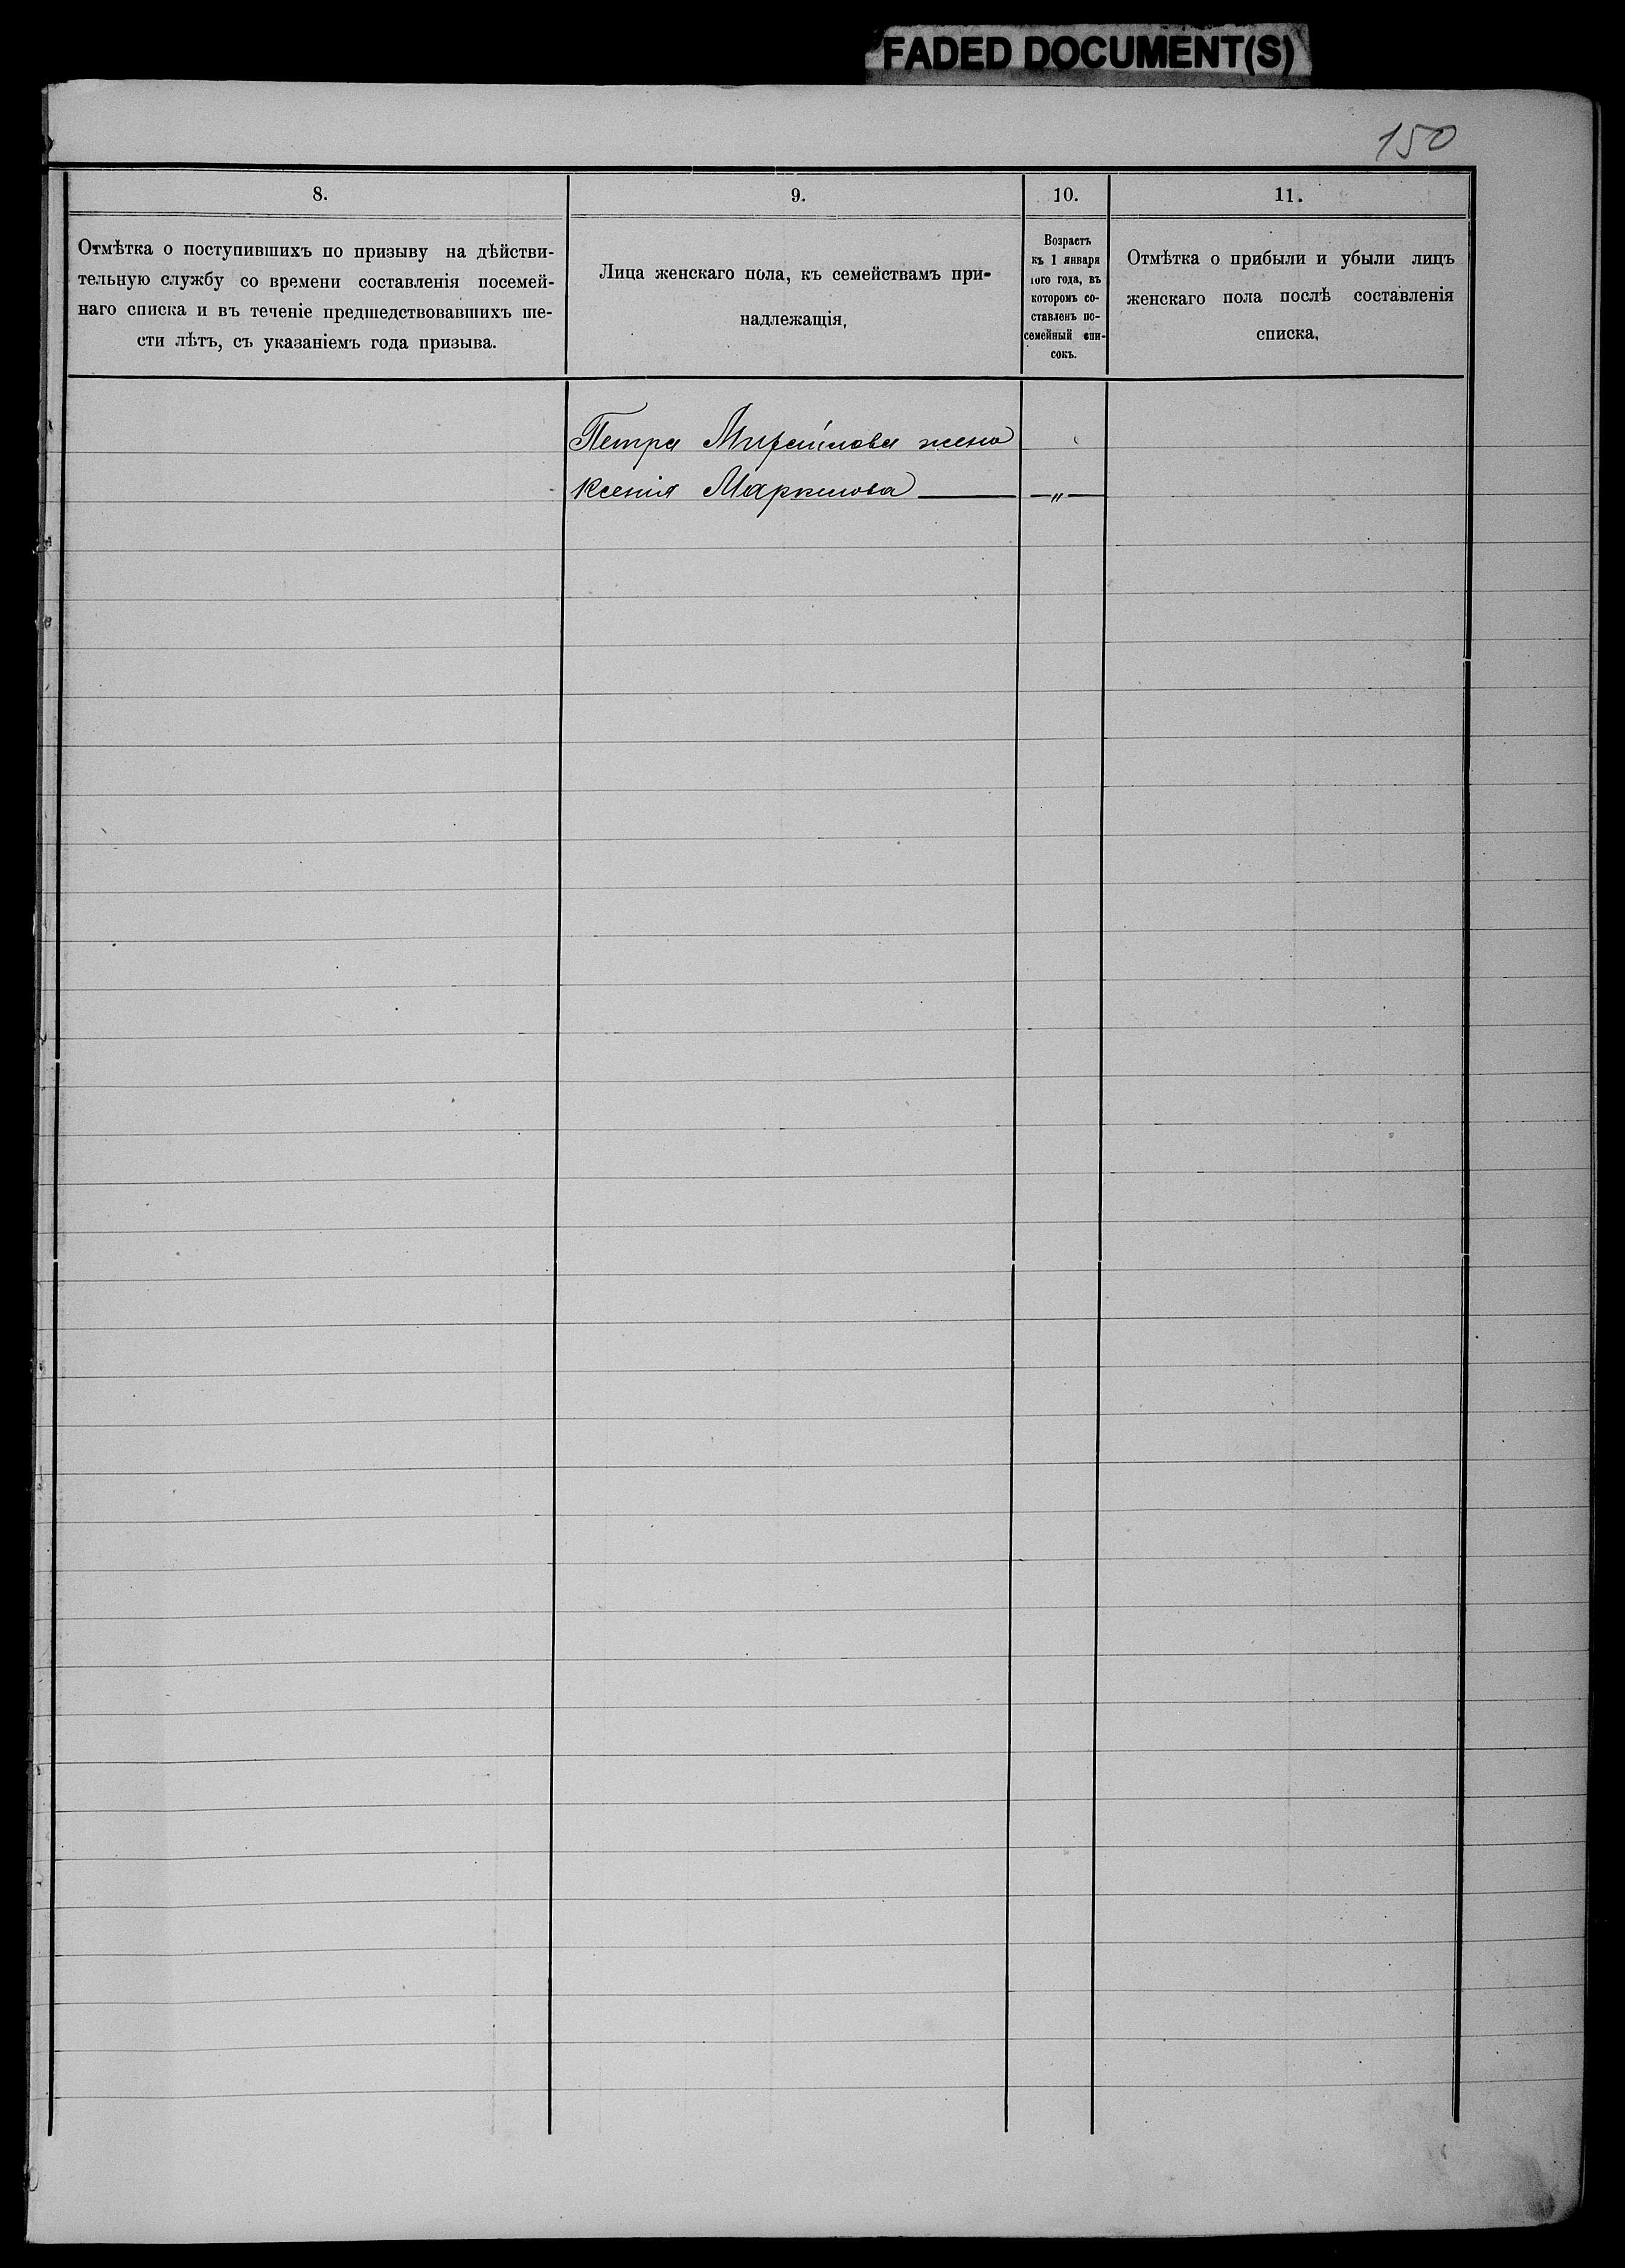 FADED DOCUMENT(S)
150
8.
9.
10.
11.
Отмѣтка о поступившихъ по призыву на дѣйстви-
тельную службу со времени составленія посемей-
наго списка и въ теченіе предшедствовавшихъ ше-
сти лѣтъ, съ указаніемъ года призыва.
Лица женскаго пола, къ семействамъ при-
надлежащія,
Возрастъ
къ 1 января
того года, въ
которомъ со-
ставленъ по-
семейный спи-
сокъ.
Отмѣтка о прибыли и убыли лицъ
женскаго пола послѣ составленія
списка,
Петра Михайлова жена
Ксенія Маркилова — „ —